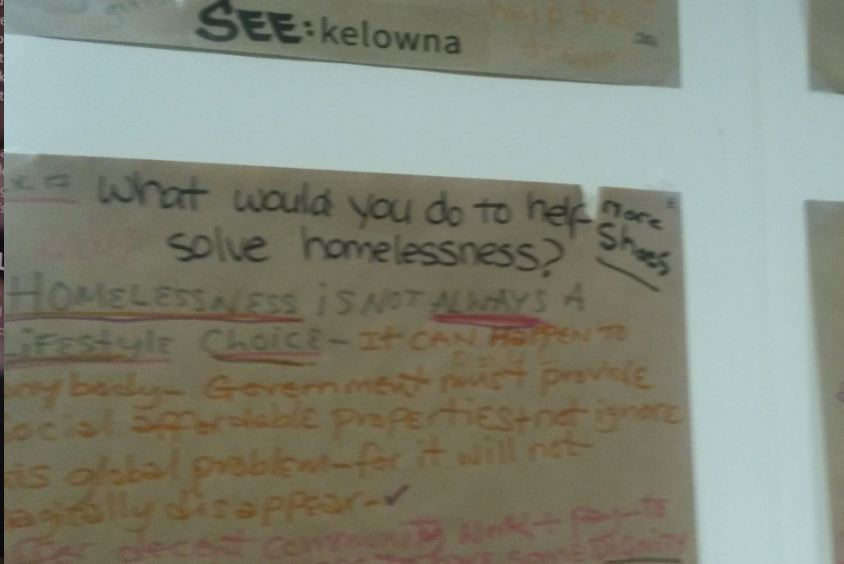 help the
SEE:kelowna
what would you do to help
solve homelessness?
more
Shoes
HOMELESSNESS iS NOT ALWAYS A
LiFEStyle CHOiCE- It CAN HAPPEN TO
nybody- Government must provide
ocial affordable properties+not ignore
is global problem-for it will not
agically disappear-
decent community work + pay-to